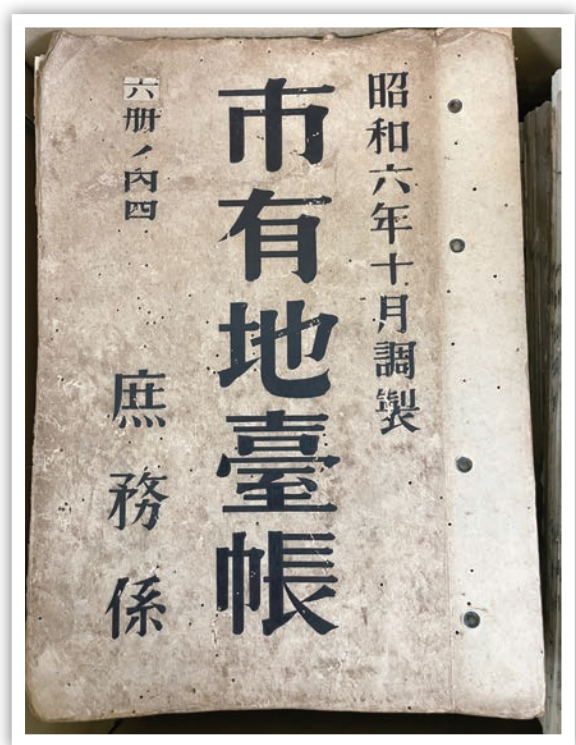 昭和六年十月調製
市有地臺帳
六册ノ内四
庶務係